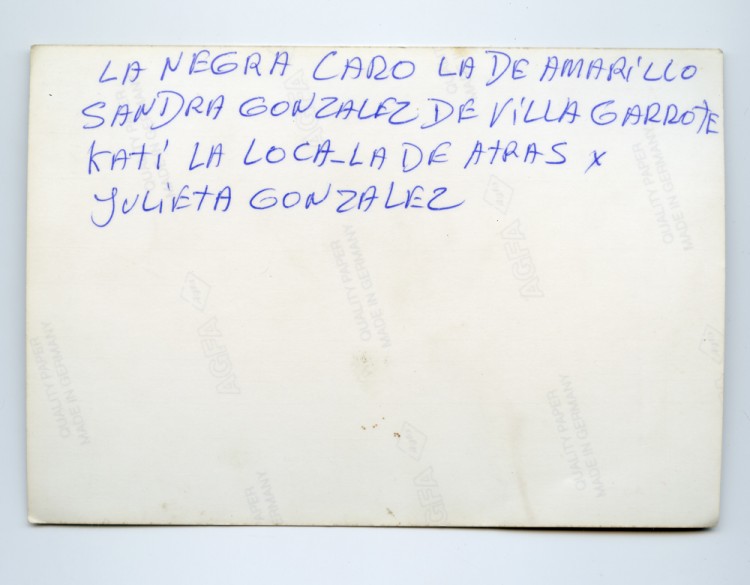 LA NEGRA CARO LA DE AMARiLLO
SANDRA GONZALEZ DE ViLLA GARROTE
KATi LA LOCA-LA DE ATRAS x
JULIETA GONZALEZ
QUALITY PAPER
MADE IN GERMANY
AGFA
QUALITY PAPER
MADE IN GERMANY
AGFA
QUALITY PAPER
MADE IN GERMANY
AGFA
QUALITY PAPER
MADE IN GERMANY
AGFA